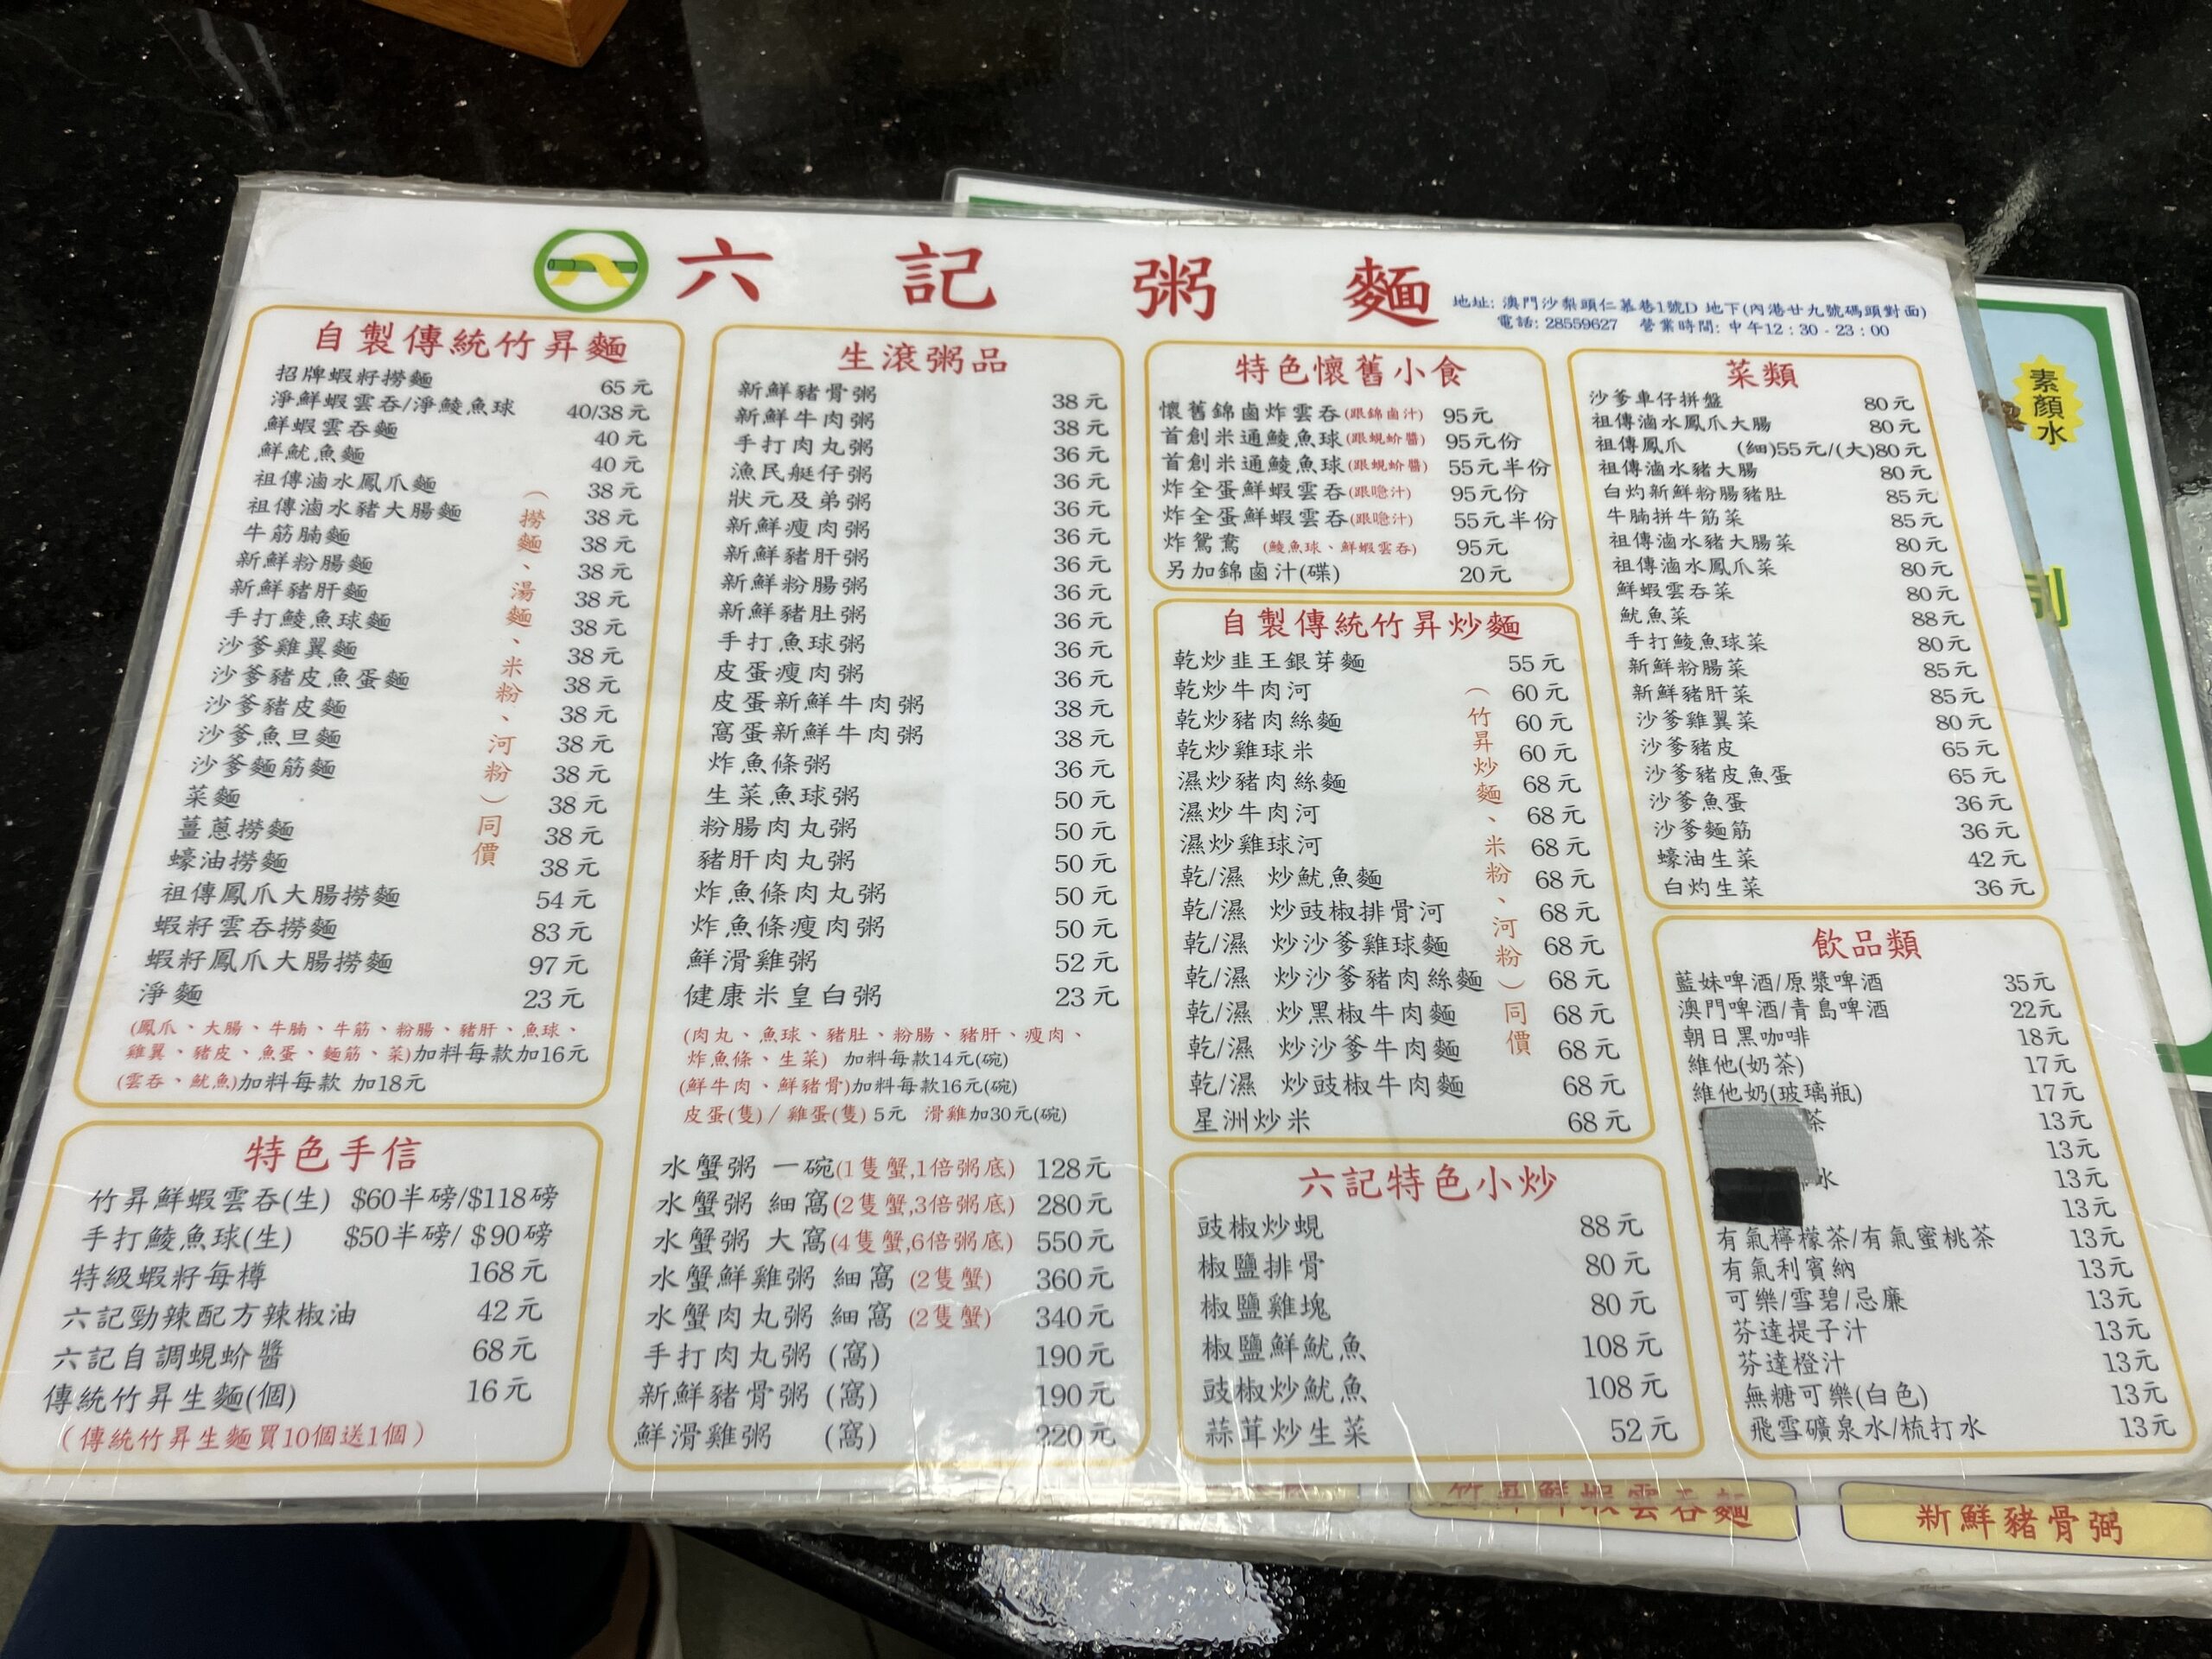 六記粥麵
地址: 澳門沙梨頭仁慕巷1號D 地下(內港廿九號碼頭對面)
電話: 28559627 營業時間: 中午12:30-23:00
自製傳統竹昇麵
招牌蝦籽撈麵 65元
淨鮮蝦雲吞/淨鯪魚球 40/38元
鮮蝦雲吞麵 40元
鮮魷魚麵 40元
祖傳滷水鳳爪麵 38元
祖傳滷水豬大腸麵 38元
牛筋腩麵 38元
新鮮粉腸麵 38元
新鮮豬肝麵 38元
手打鯪魚球麵 38元
沙爹雞翼麵 38元
沙爹豬皮魚蛋麵 38元
沙爹豬皮麵 38元
沙爹魚旦麵 38元
沙爹麵筋麵 38元
菜麵 38元
薑蔥撈麵 38元
蠔油撈麵 38元
祖傳鳳爪大腸撈麵 54元
蝦籽雲吞撈麵 83元
蝦籽鳳爪大腸撈麵 97元
淨麵 23元
(撈麵、湯麵、米粉、河粉)同價
(鳳爪、大腸、牛腩、牛筋、粉腸、豬肝、魚球、
雞翼、豬皮、魚蛋、麵筋、菜)加料每款加16元
(雲吞、魷魚)加料每款 加18元
特色手信
竹昇鮮蝦雲吞(生) $60半磅/$118磅
手打鯪魚球(生) $50半磅/ $90磅
特級蝦籽每樽 168元
六記勁辣配方辣椒油 42元
六記自調蜆蚧醬 68元
傳統竹昇生麵(個) 16元
(傳統竹昇生麵買10個送1個)
生滾粥品
新鮮豬骨粥 38元
新鮮牛肉粥 38元
手打肉丸粥 36元
漁民艇仔粥 36元
狀元及弟粥 36元
新鮮瘦肉粥 36元
新鮮豬肝粥 36元
新鮮粉腸粥 36元
新鮮豬肚粥 36元
手打魚球粥 36元
皮蛋瘦肉粥 36元
皮蛋新鮮牛肉粥 38元
窩蛋新鮮牛肉粥 38元
炸魚條粥 36元
生菜魚球粥 50元
粉腸肉丸粥 50元
豬肝肉丸粥 50元
炸魚條肉丸粥 50元
炸魚條瘦肉粥 50元
鮮滑雞粥 52元
健康米皇白粥 23元
(肉丸、魚球、豬肚、粉腸、豬肝、瘦肉、
炸魚條、生菜) 加料每款14元(碗)
(鮮牛肉、鮮豬骨)加料每款16元(碗)
皮蛋(隻)/ 雞蛋(隻) 5元 滑雞加30元(碗)
水蟹粥 一碗(1隻蟹,1倍粥底) 128元
水蟹粥 細窩(2隻蟹,3倍粥底) 280元
水蟹粥 大窩(4隻蟹,6倍粥底) 550元
水蟹鮮雞粥 細窩 (2隻蟹) 360元
水蟹肉丸粥 細窩 (2隻蟹) 340元
手打肉丸粥 (窩) 190元
新鮮豬骨粥 (窩) 190元
鮮滑雞粥 (窩) 220元
特色懷舊小食
懷舊錦鹵炸雲吞(跟錦鹵汁) 95元
首創米通鯪魚球(跟蜆蚧醬) 95元份
首創米通鯪魚球(跟蜆蚧醬) 55元半份
炸全蛋鮮蝦雲吞(跟喼汁) 95元份
炸全蛋鮮蝦雲吞(跟喼汁) 55元半份
炸鴛鴦 (鯪魚球、鮮蝦雲吞) 95元
另加錦鹵汁(碟) 20元
自製傳統竹昇炒麵
乾炒韭王銀芽麵 55元
乾炒牛肉河 60元
乾炒豬肉絲麵 60元
乾炒雞球米 60元
濕炒豬肉絲麵 68元
濕炒牛肉河 68元
濕炒雞球河 68元
乾/濕 炒魷魚麵 68元
乾/濕 炒豉椒排骨河 68元
乾/濕 炒沙爹雞球麵 68元
乾/濕 炒沙爹豬肉絲麵 68元
乾/濕 炒黑椒牛肉麵 68元
乾/濕 炒沙爹牛肉麵 68元
乾/濕 炒豉椒牛肉麵 68元
星洲炒米 68元
(竹昇炒麵、米粉、河粉)同價
六記特色小炒
豉椒炒蜆 88元
椒鹽排骨 80元
椒鹽雞塊 80元
椒鹽鮮魷魚 108元
豉椒炒魷魚 108元
蒜茸炒生菜 52元
菜類
沙爹車仔拼盤 80元
祖傳滷水鳳爪大腸 80元
祖傳鳳爪 (細)55元/(大)80元
祖傳滷水豬大腸 80元
白灼新鮮粉腸豬肚 85元
牛腩拼牛筋菜 85元
祖傳滷水豬大腸菜 80元
祖傳滷水鳳爪菜 80元
鮮蝦雲吞菜 80元
魷魚菜 88元
手打鯪魚球菜 80元
新鮮粉腸菜 85元
新鮮豬肝菜 85元
沙爹雞翼菜 80元
沙爹豬皮 65元
沙爹豬皮魚蛋 65元
沙爹魚蛋 36元
沙爹麵筋 36元
蠔油生菜 42元
白灼生菜 36元
飲品類
藍妹啤酒/原漿啤酒 35元
澳門啤酒/青島啤酒 22元
朝日黑咖啡 18元
維他(奶茶) 17元
維他奶(玻璃瓶) 17元
茶 13元
13元
水 13元
13元
有氣檸檬茶/有氣蜜桃茶 13元
有氣利賓納 13元
可樂/雪碧/忌廉 13元
芬達提子汁 13元
芬達橙汁 13元
無糖可樂(白色) 13元
飛雪礦泉水/梳打水 13元
素顏水
竹昇鮮蝦雲吞麵
新鮮豬骨粥